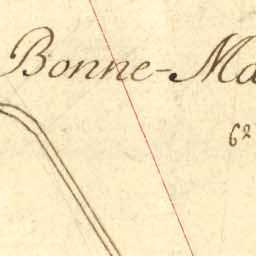 Bonne-Ma
62